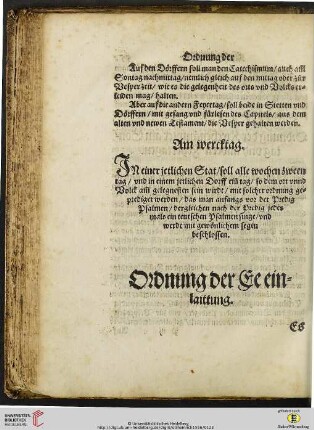 Ordnung der
Auf den Dörffern soll man den Catechismum / auch all
Sontag nachmittag / nemlich gleich auf den mittag oder zür
Vesper zeit / wie es die gelegenheit des orts vnd Volcks er-
leiden mag / halten.
Aber auf die andern Feyertag / soll beide in Stetten vnd
Dörffern / mit gesang vnd fürlesen des Capitels / aus dem
alten vnd newen Testament / die Vesper gehalten werden.
Am wercktag.
IN einer jetlichen Stat / soll alle wochen zween
tag / vnd in einem jetlichen Dorff ein tag / so dem ort vnnd
Volck am gelegnesten sein würdt / mit solcher ordnung ge-
prediget werden / das man anfangs vor der Predig
Psalmen / dergleichen nach der Predig jedes
mals ein teutschen Psalmen singe / vnd
werde mit gewonlichem segen
beschlossen.
Ordnung der Ee ein-
laittung.
Es
UNIVERSITÄTS-
BIBLIOTHEK
HEIDELBERG
© Universitätsbibliothek Heidelberg